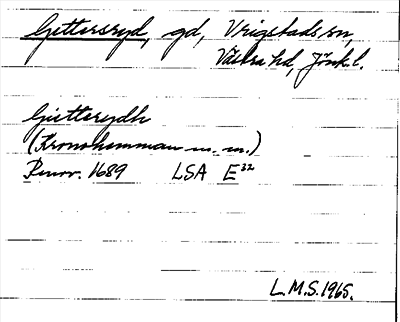 Gettersryd, gd, Vrigstads sn,
Västra hd, Jönk. l.
Gietterydh
(Kronohemman m. m.)
Penov. 1689 LSA E³²
L.M.S. 1965.